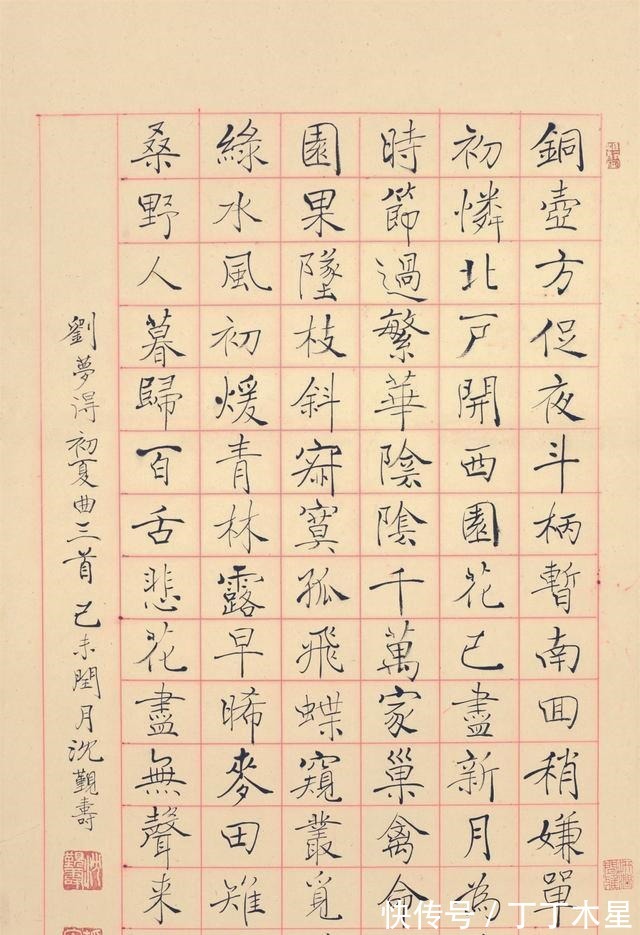 銅壺方促夜斗柄暫南囬稍嫌單
初憐北戶開西園花已盡新月為
時節過繁華陰陰千萬家巢禽命
園果墜枝斜寂寞孤飛蝶窺叢覓
綠水風初煖青林露早晞麥田雉
桑野人暮歸百舌悲花盡無聲来
劉夢得初夏曲三首 己未閏月沈覲壽
快传号／丁丁木星